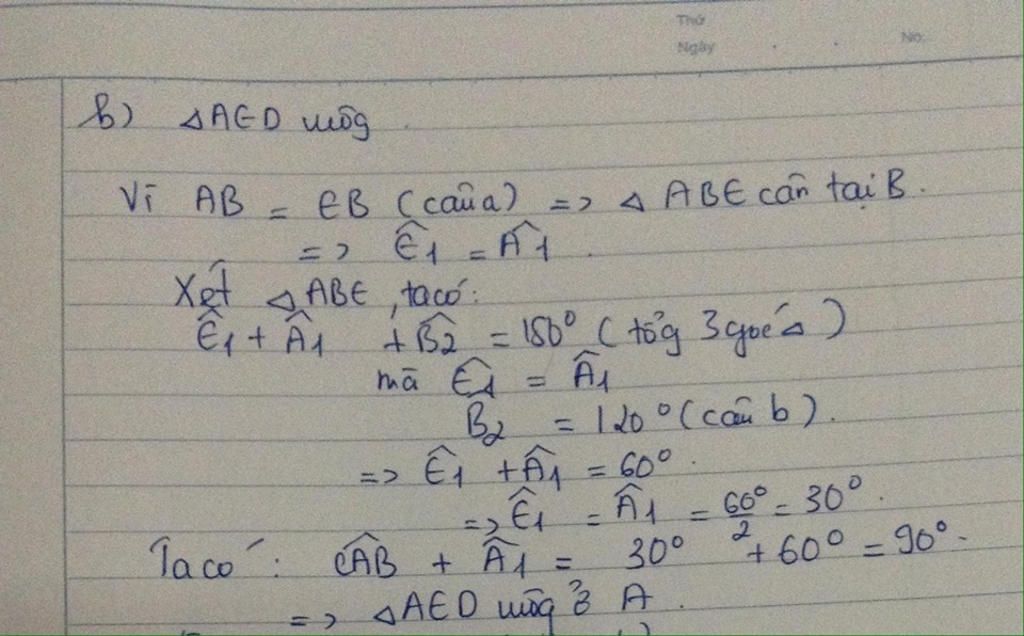 Thứ
Ngày . . No.
b) △AED uuôg .
Vì AB = EB (câu a) => △ ABE cân tại B.
=> Ê1 = Â1 .
Xét △ABE, ta có:
Ê1 + Â1 + B̂2 = 180° (tổg 3 goć △)
mà Ê1 = Â1
B2 = 120° (câu b).
=> Ê1 + Â1 = 60° .
=> Ê1 = Â1 = 60°/2 = 30° .
Ta có : CÂB + Â1 = 30° + 60° = 90° .
=> △AED uuôg ở A .